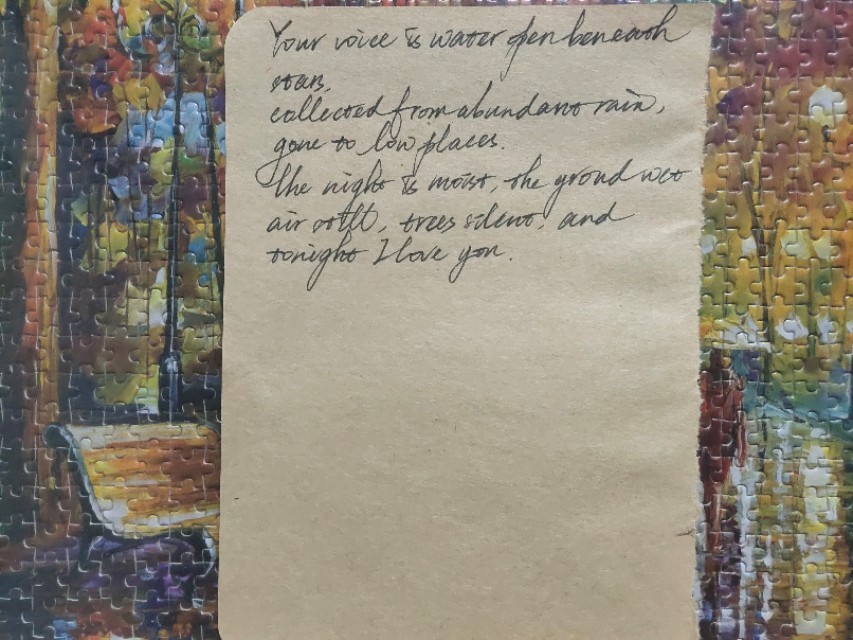 Your voice is water open beneath
stars,
collected from abundant rain,
gone to low places.
The night is moist, the grond wet
air still, trees silent, and
tonight I love you.